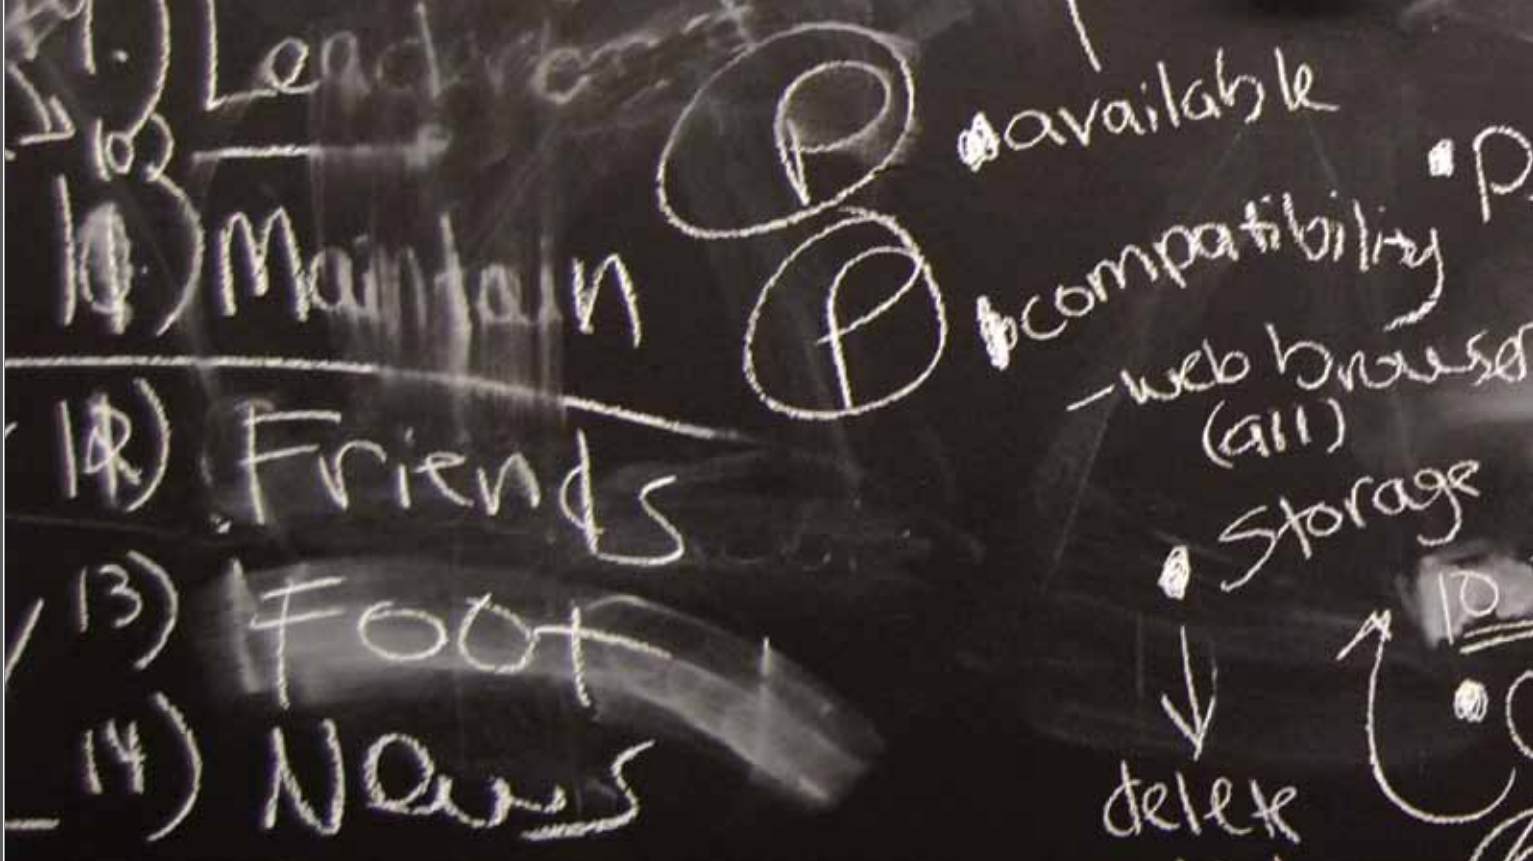 10)
Maintain
12) Friends
13) Foot
14) News
P
P
• available
• compatibility
- web browser
(all)
• storage
delete
10